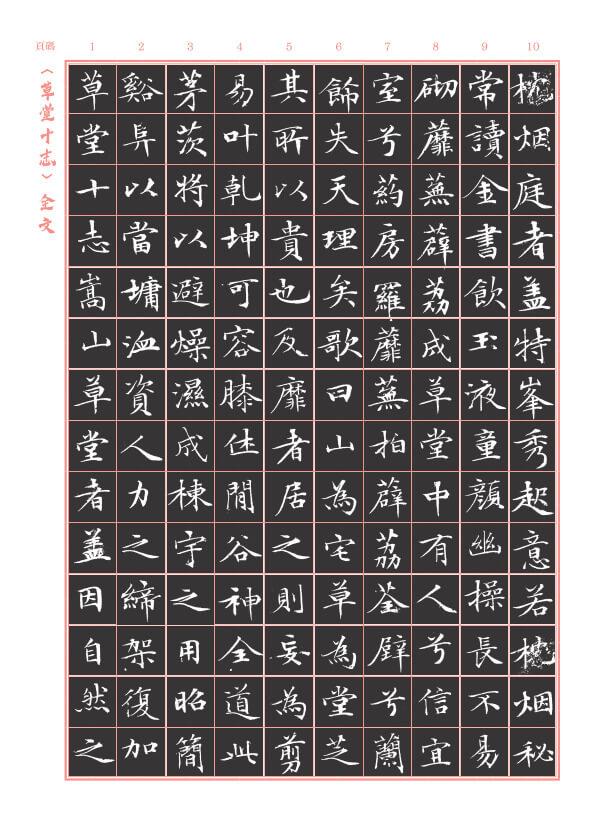 頁碼 1 2 3 4 5 6 7 8 9 10
《草堂十志》全文
草堂十志嵩山草堂者盖因自然之
谿阜以當墉洫資人力之締架復加
茅茨將以避燥濕成棟宇之用昭簡
易叶乾坤可容膝休閒谷神全道此
其所以貴也及靡者居之則妄為剪
飾失天理矣歌曰山為宅草為堂芝
室兮葯房羅蘼蕪拍薜荔荃壁兮蘭
砌蘼蕪薜荔成草堂中有人兮信宜
常讀金書飲玉液童顏幽操長不易
枕烟庭者盖特峯秀起意若枕烟秘